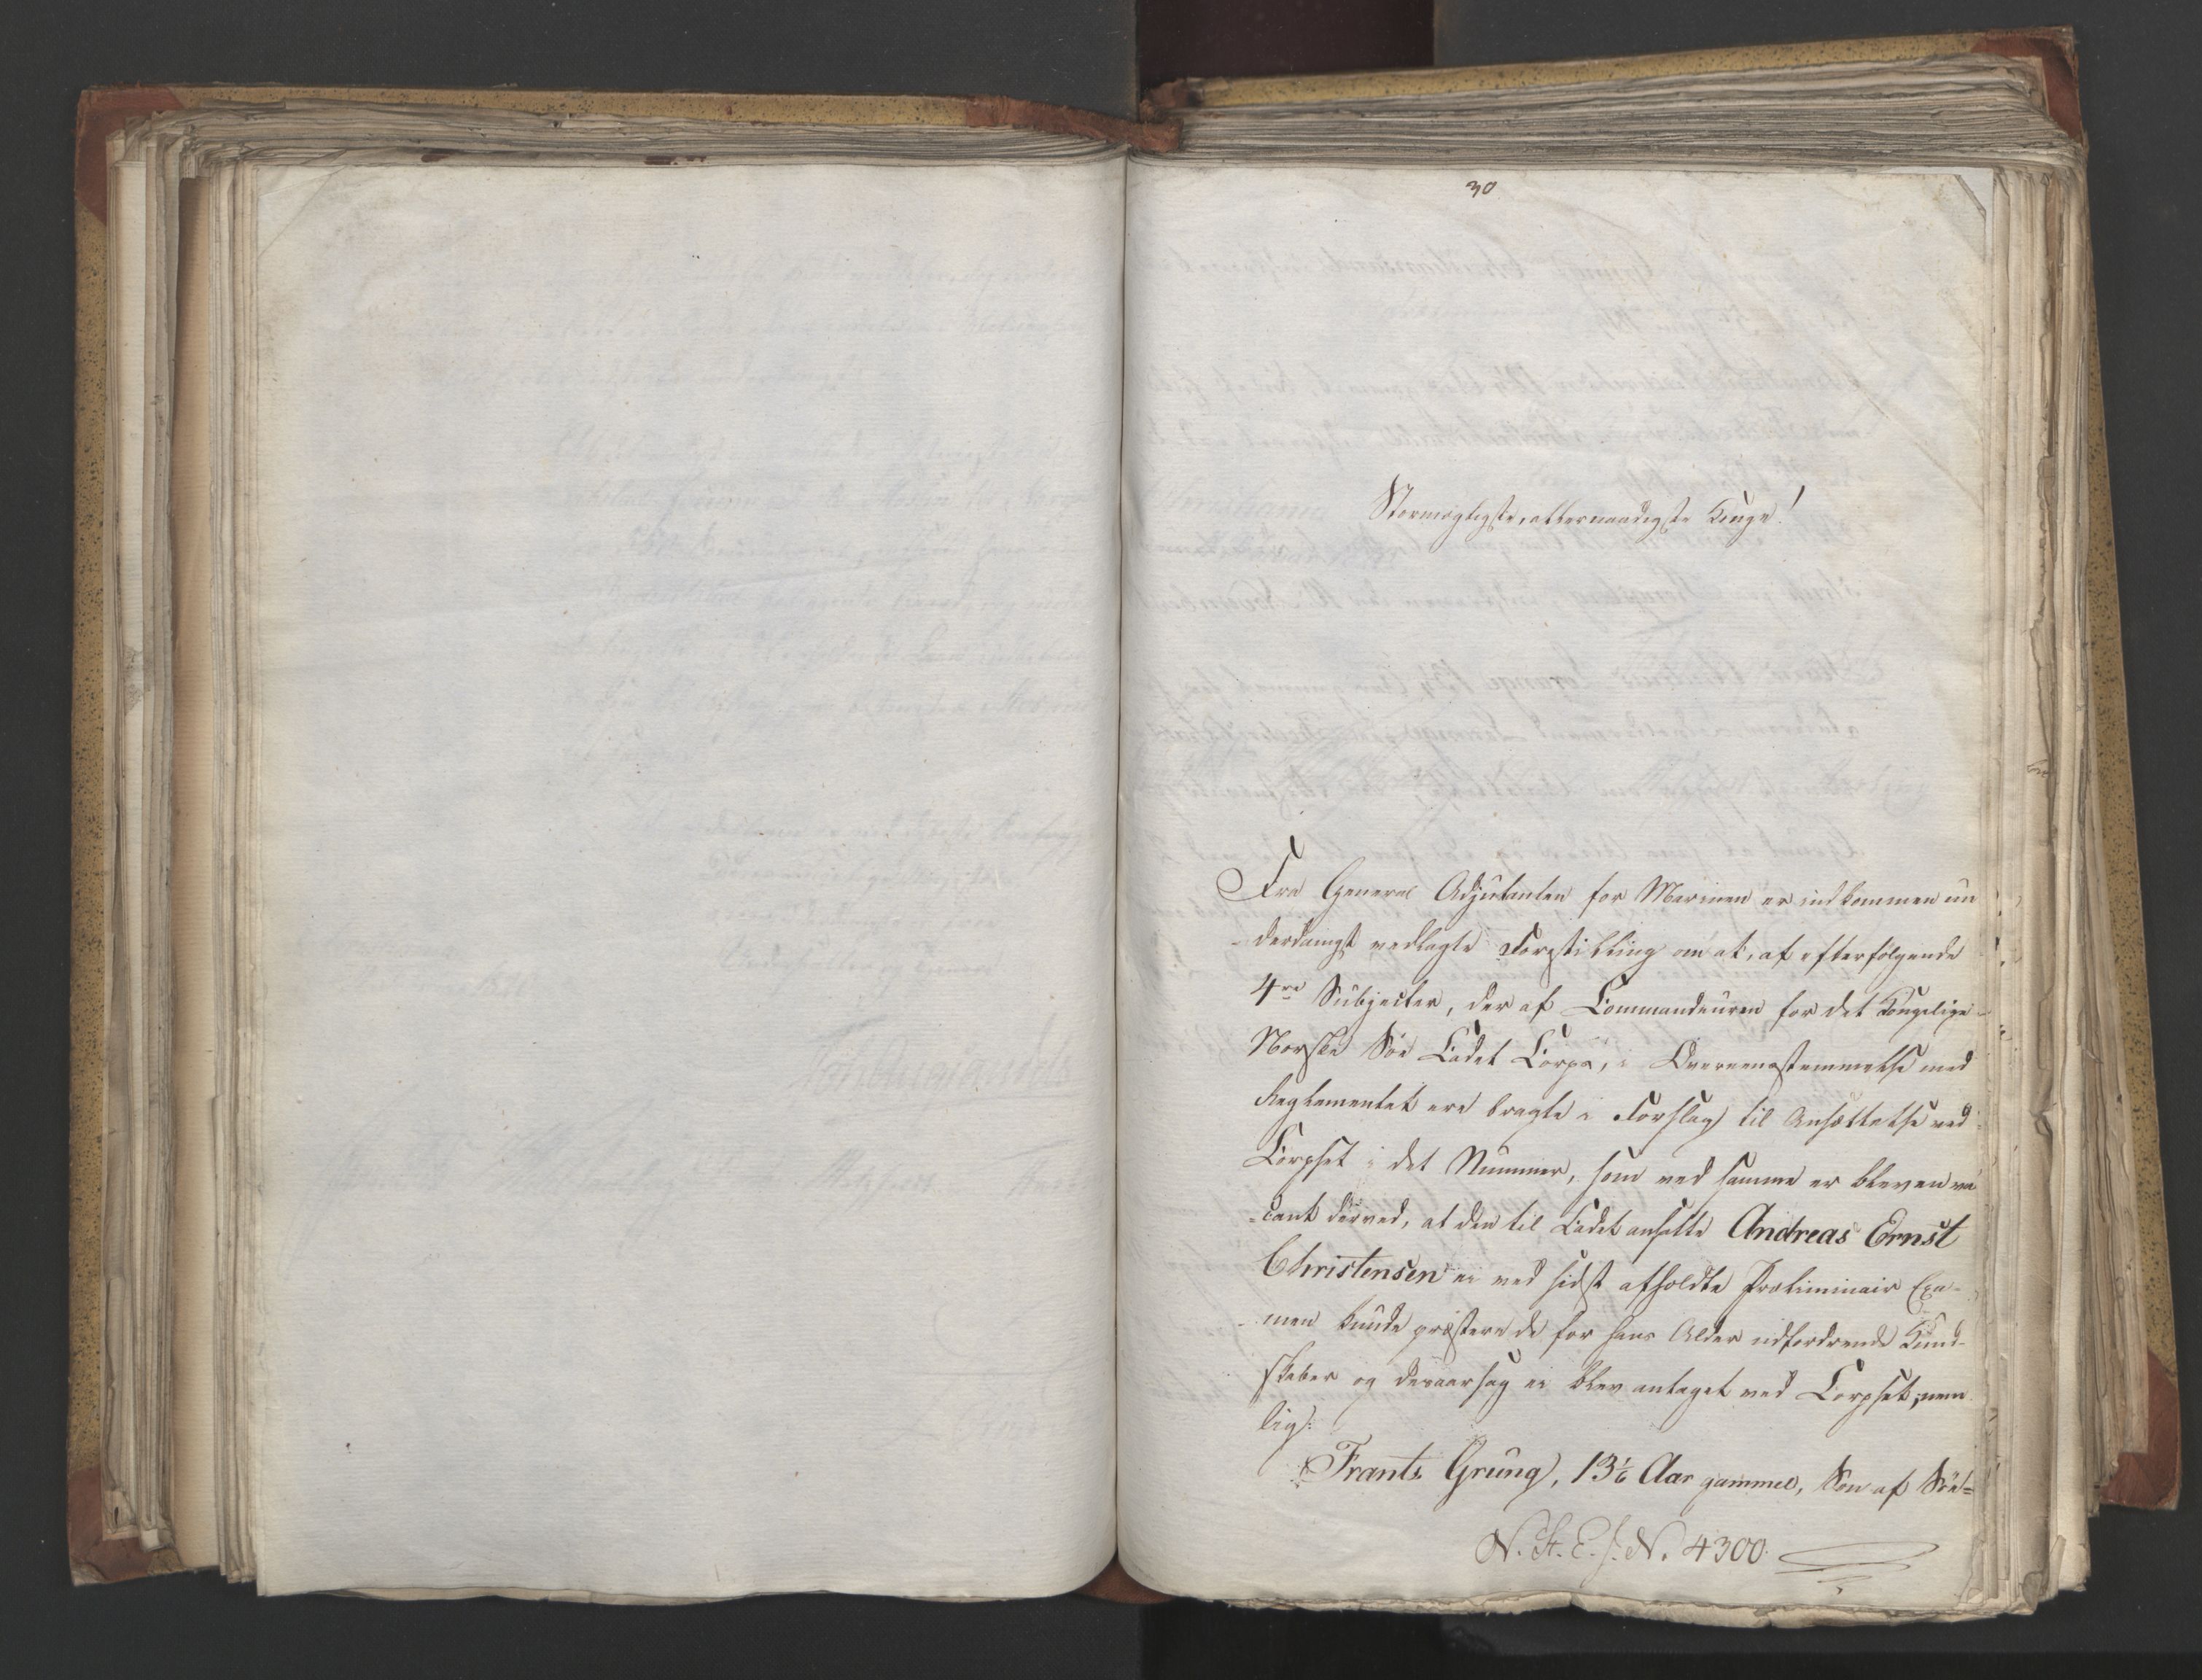 30
Stormægtigste, allernaadigste Konge!
Fra General Adjutanten for Marinen er indkommen un
-derdanigst vedlagte Forestilling om at, af efterfølgende
4re Subjecter, der af Commandeuren for det Kongelige
Norske Søe Cadet Corps, i Overeensstemmelse med
Reglementet ere bragte i Forslag til Ansættelse ved
Corpset i det Nummer, som ved samme er bleven va
-cant derved, at den til Cadet ansatte Andreas Ernst
Christensen ei ved sidst afholdte Præliminair Exa-
-men kunde præstere de for hans Alder udfordrende Kund-
skaber og desaarsag ei blev antaget ved Corpset, nem
lig:
Frants Grung, 13 1/6 Aar gammel, Søn af Søe=
N. St. E. J. N. 4300.